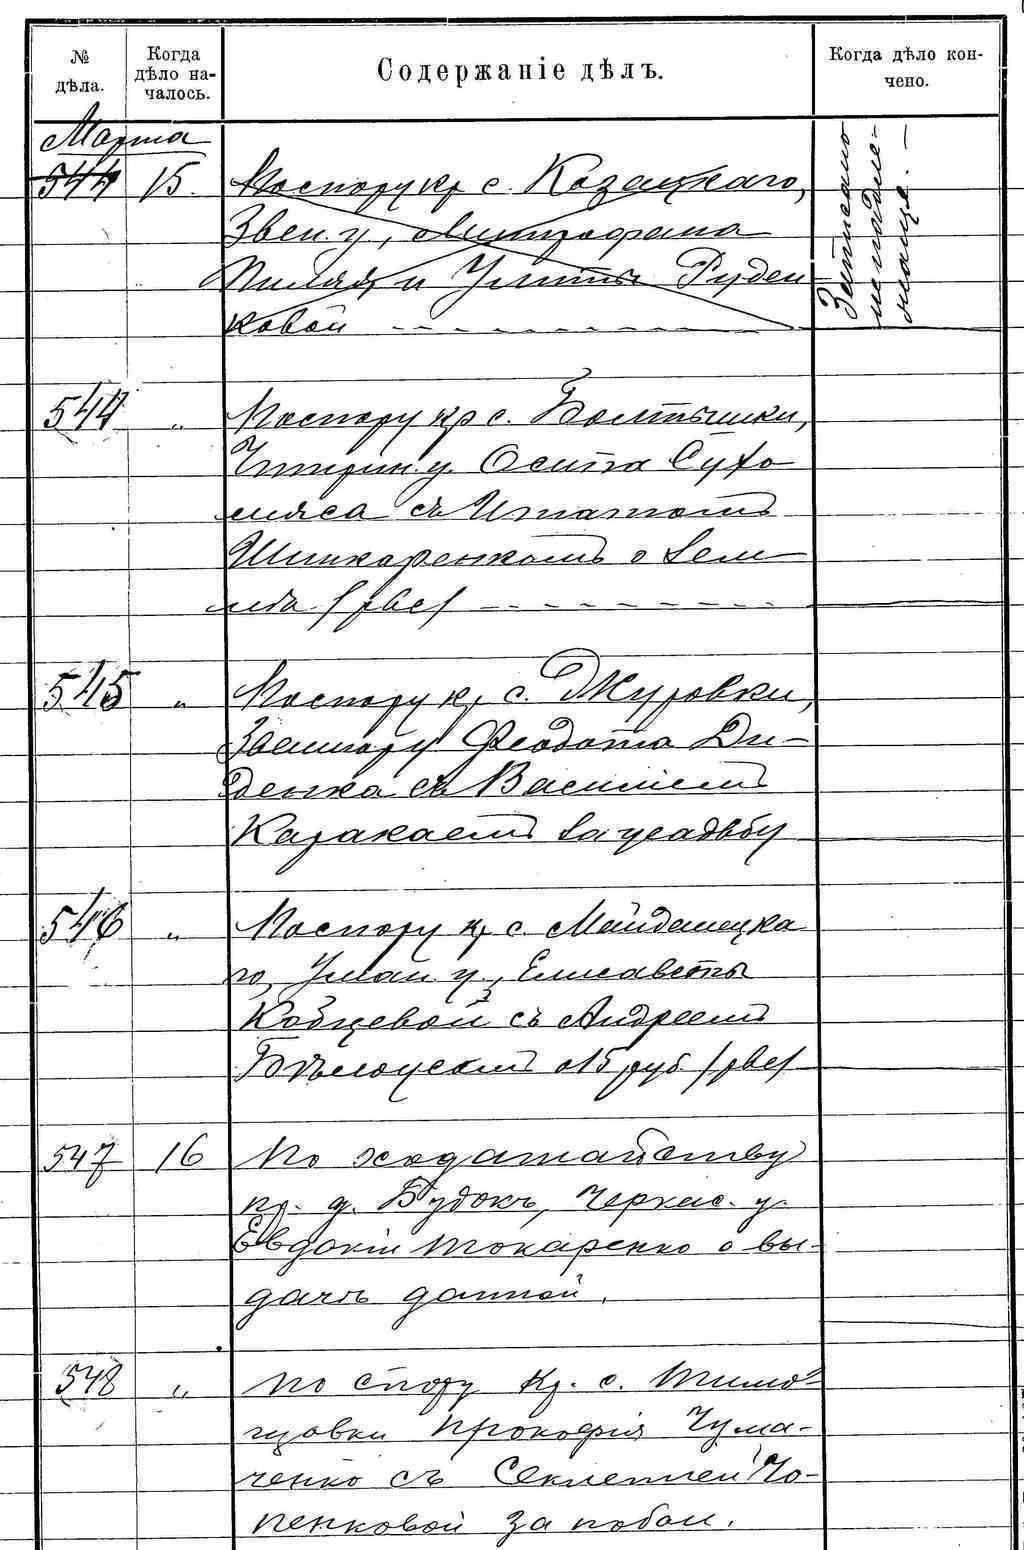 № дѣла.
Когда дѣло началось.
Содержаніе дѣлъ.
Когда дѣло кончено.
Марта
544 15. По спору кр с. Козацкаго,
Звен. у., Митрофана
Пиляя и Улиты Руден-
ковой
Записано
не подле-
жаще. —
544 „ По спору кр с. Болтышки,
Чигрин. у. Осипа Сухо
ляса съ Игнатомъ
Шинкаренкомъ о зем
лѣ /рвс/
545 „ По спору кр. с. Журовки,
Звенигор у Феодота Ди-
денка съ Василіемъ
Каракаемъ за усадьбу
546 „ По спору кр с. Майданецка
го, Уман. у., Елисаветы
Кобцевой съ Андреемъ
Бѣлоусомъ о 15 руб. /рвс/
547 16 По ходатайству
кр. д. Будокъ, Черкас. у.
Евдокіи Токаренко о вы-
дачѣ данной.
548 „ По спору кр. с. Тимо-
шовки Прокофія Чума-
ченко съ Секлетіей Чо-
пенковой за побои.